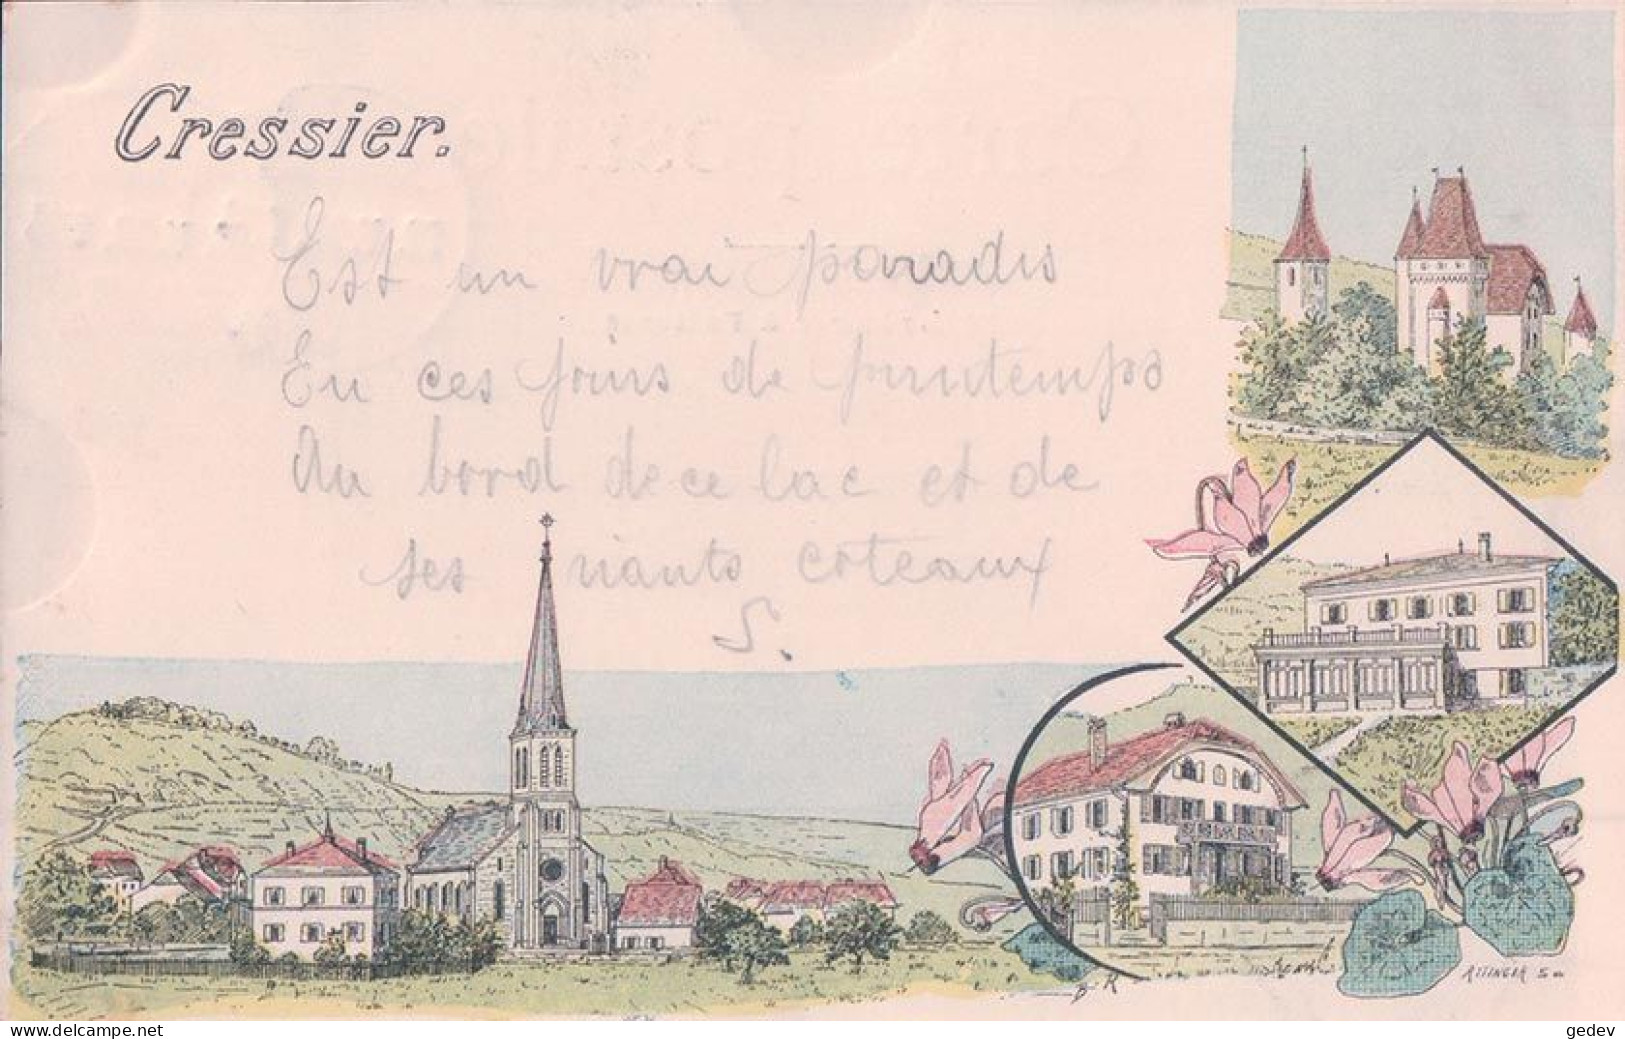 Cressier.
Est un vrai paradis
En ces jours de printemps
Au bord de ce lac et de
ses riants coteaux
S.
B. K
ATTINGER Sc
www.delcampe.net
gedev